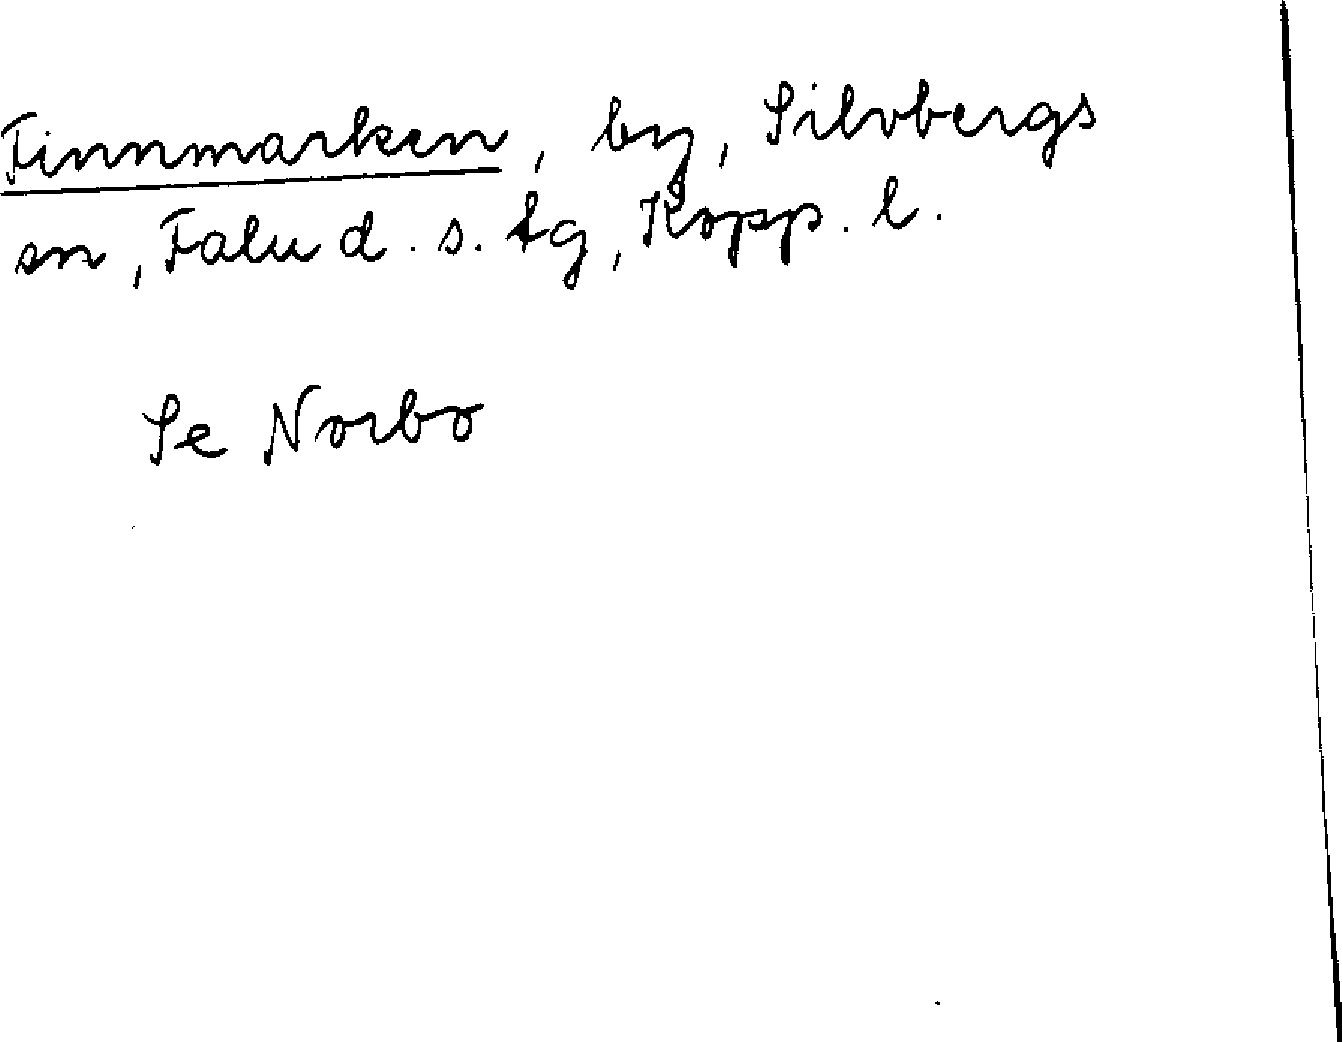 Finnmarken, by, Silvbergs
sn, Falu d. s. tg, Kopp. l.
Se Norbo